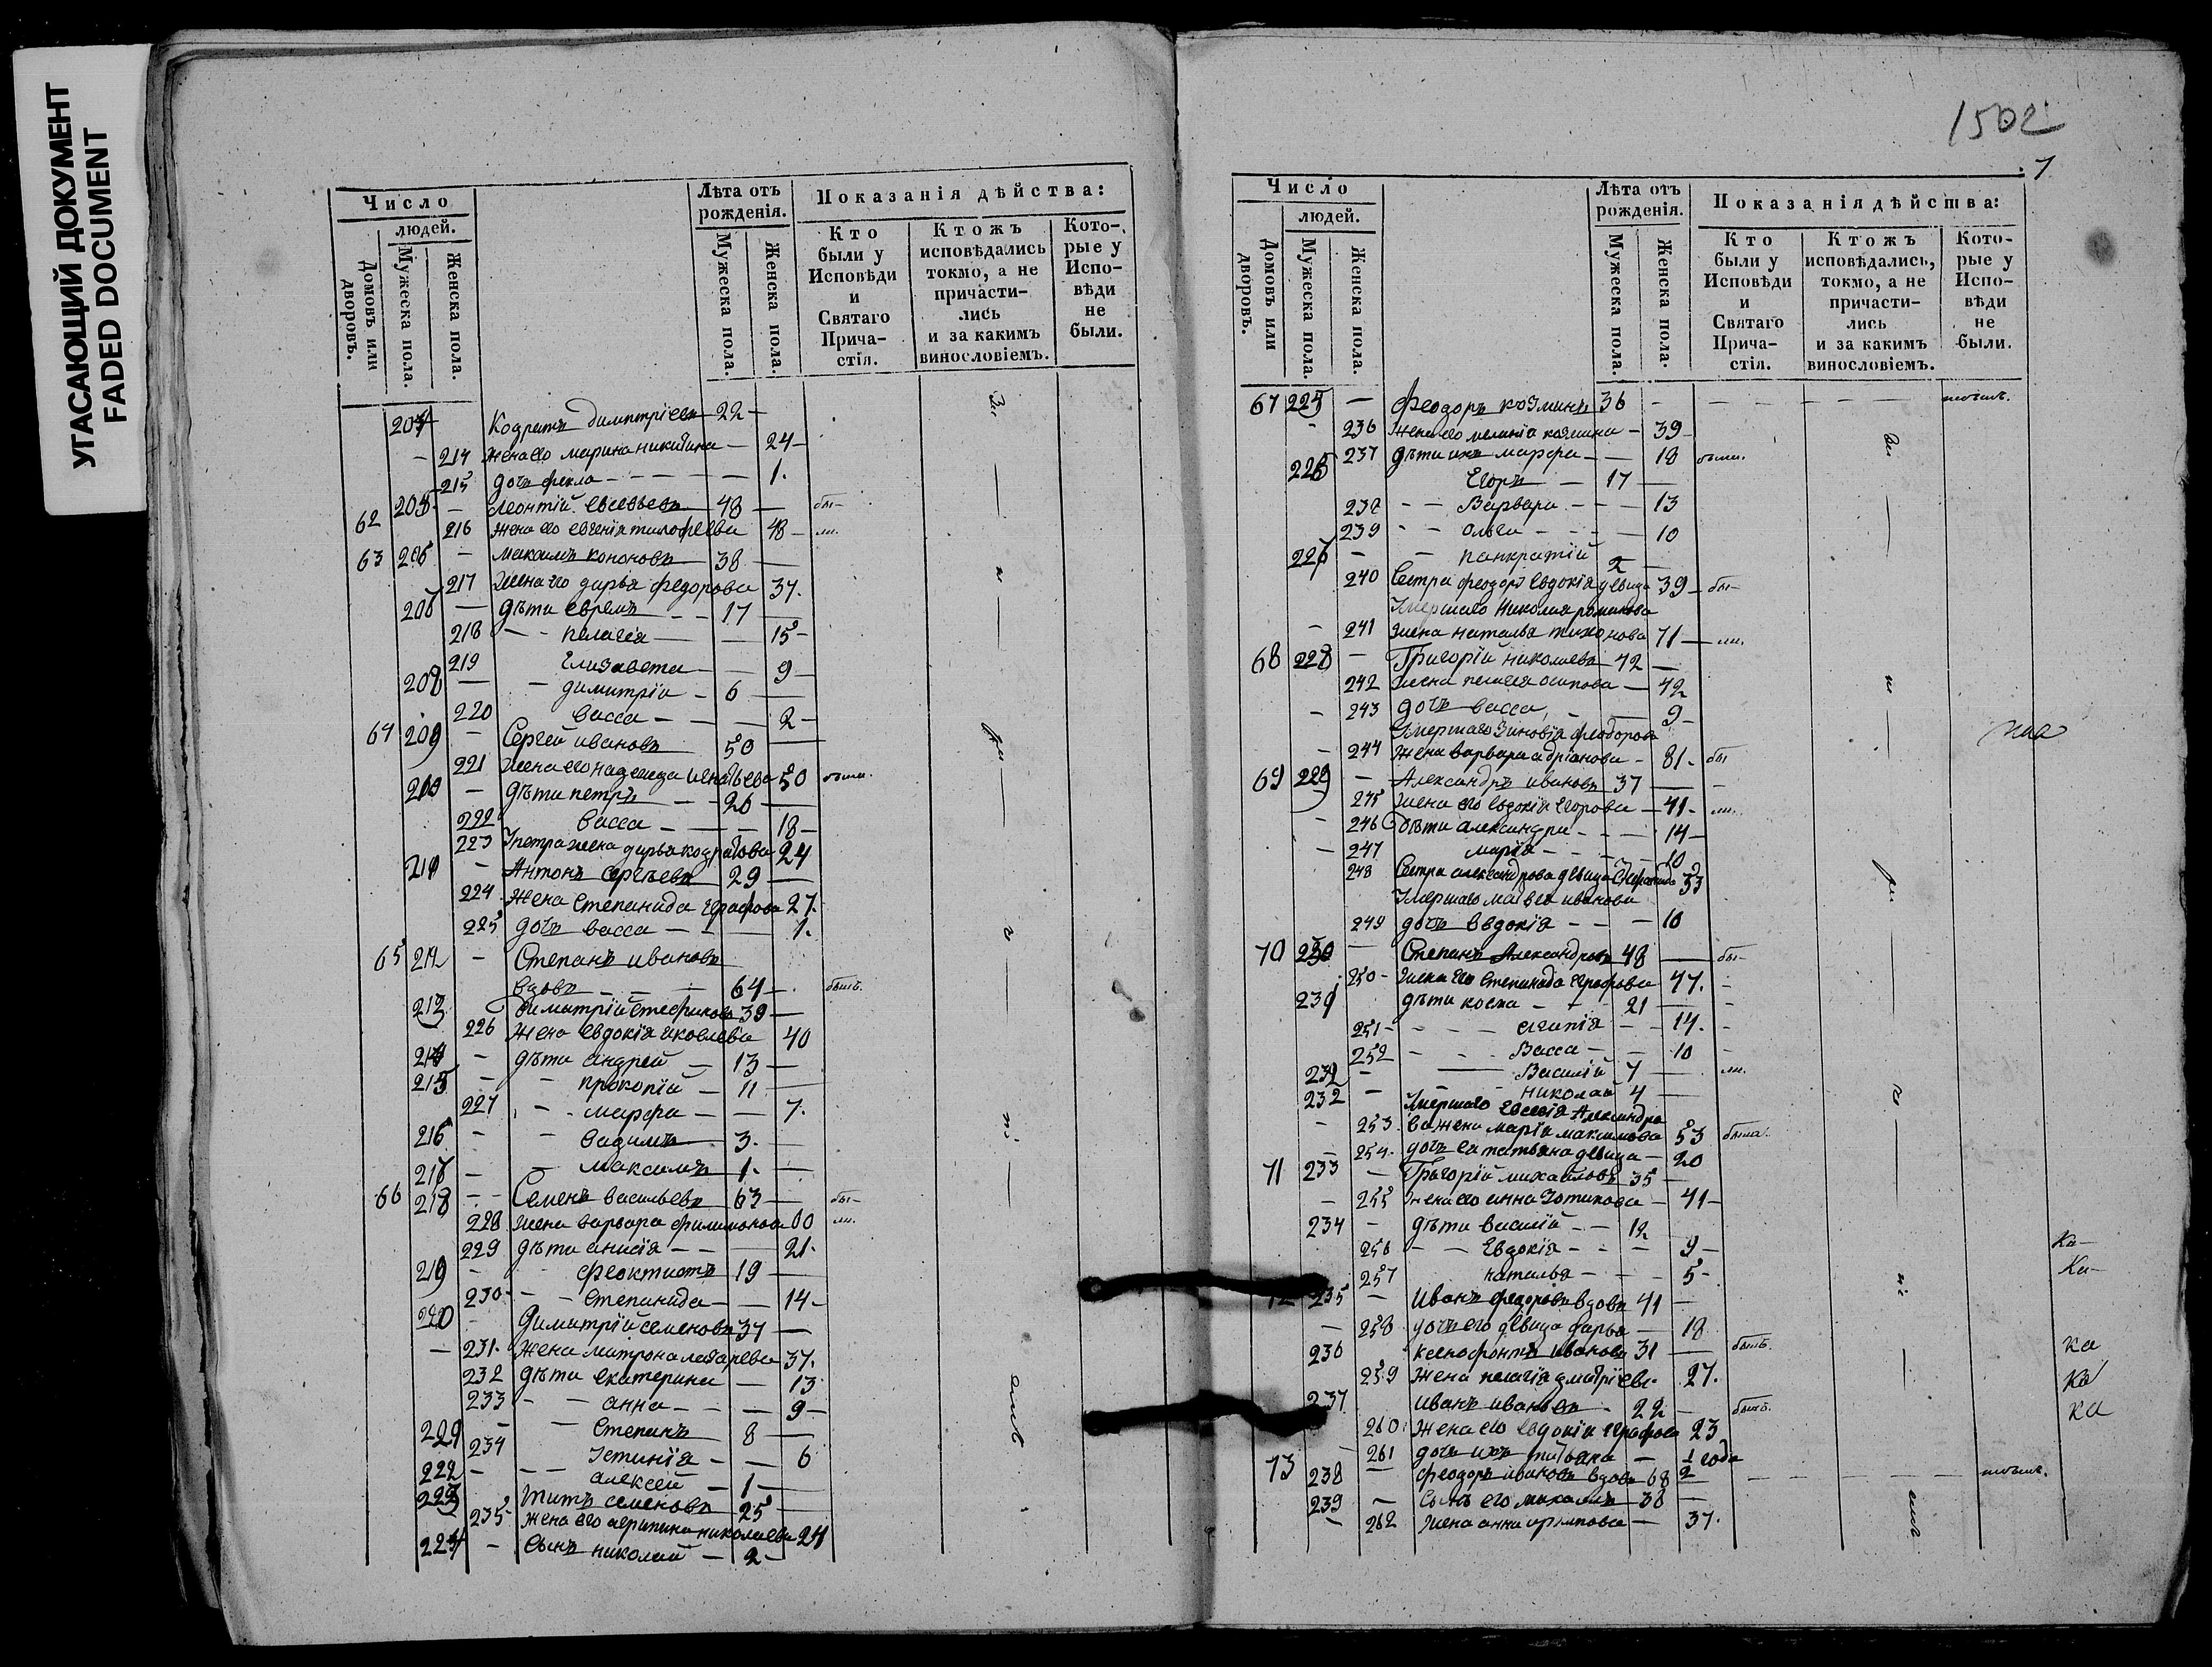 УГАСАЮЩИЙ ДОКУМЕНТ
FADED DOCUMENT
Число
людей.
Домовъ или дворовъ.
Мужеска пола.
Женска пола.
Лѣта отъ рожденія.
Мужеска пола.
Женска пола.
Показанія дѣйства:
Кто были у Исповѣди и Святаго Прича-стія.
Ктожъ исповѣдались токмо, а не причасти-лись и за какимъ винословіемъ.
Кото-рые у Испо-вѣди не были.
204 Кодратъ Димитріевъ 22 —
— 214 жена его марина никитина — 24 —
215 дочь фекла — — 1.
62 205 — Леонтій Евсевьевъ 48 — бы-
216 жена его евгенія тимофеева 48 — ли.
63 206 — максимъ кононовъ 38 —
217 жена его дарья федорова 37.
207 — дѣти ефремъ — 17 —
218 — пелагія — — 15 —
219 Елизавета — 9 —
208 — — димитрій — 6 —
220 васса — — 2 —
64 209 — Сергей ивановъ 50 —
221 жена его надежда игнатьева 50 были.
210 — дѣти петръ — 26 —
222 васса — — 18 —
223 У петра жена дарья кодратова 24
211 — Антонъ сергѣевъ 29 —
224 жена степанида еграфова 27.
225 дочь васса — — 1.
65 212 — Степанъ ивановъ
вдовъ — — 64 — былъ.
213 Димитрій стефановъ 39 —
226 жена евдокія яковлева 40
214 — дѣти андрей — 13 —
215 — — прокопій — 11 —
227 — марфа — — 7.
216 — — вадимъ 3. —
217 — — максимъ 1. —
66 218 — Семенъ васильевъ 63 — бы-
228 жена варвара филимонова 60 ли.
229 дѣти анисія — — 21.
219 — феоктистъ 19 —
230 — — степанида — — 14 —
220 — Димитрій семеновъ 37 —
— 231. жена матрона лазарева 37.
232 дѣти екатерина — 13
233 — — анна — — 9 —
221 — — Степанъ 8 —
234 Устинія — — 6
222 — — алексей — 1 —
223 титъ семеновъ 25 —
235 жена его агрипина николаева 24
224 — сынъ николай — 2 —
1502
7
Число
людей.
Домовъ или дворовъ.
Мужеска пола.
Женска пола.
Лѣта отъ рожденія.
Мужеска пола.
Женска пола.
Показанія дѣйства:
Кто были у Исповѣди и Святаго Прича-стія.
Ктожъ исповѣдались, токмо, а не причасти-лись и за какимъ винословіемъ.
Кото-рые у Испо-вѣди не были.
67 225 — Феодоръ козминъ 36 — — — —
— 236 жена его меланія козмина — 39 —
237 дѣти ихъ марфа — — 18 были.
226 Егоръ — 17 —
238 — — Варвара — — 13
239 — — ольга — — 10
227 — — панкратій 2 —
240 Сестра феодора евдокія девица 39 — бы-
Умершаго Николая романова
— 241 жена наталья тихонова 71 — ли.
68 228 — Григорій николаевъ 42 —
242 жена пелагея осипова — 42
— 243 дочь васса — — 9 —
Умершаго Зиновія феодорова
— 244 жена варвара адріанова — 81. бы
69 229 — Александръ ивановъ 37 — —
245 жена его евдокія егорова — 41 — ли.
— 246 дѣти александра — — 14 —
— 247 марія — — — 10
248 Сестра александрова девица 33
Умершаго матвея иванова
249 дочь евдокія — — — 10
70 230 — Степанъ Александровъ 48 — бы-
250 — жена его степанида еграфова 47. —
231 дѣти косма — — 21 — —
251 — — — агапія — — 14. —
252 — — Васса — — 10 —
232 — — Василій 7 — ли.
232 — — николай 4 —
Умершаго Евсевія Александро
— 253. ва жена марія максимова 53 была.
— 254. дочь ея татьяна девица — 20
71 233 — Григорій михайловъ 35 —
— 255 жена его анна Зотикова — 41 —
234 — дѣти василій — — 12
256 — — Евдокія — — 9 —
257 наталья — — — 5 —
72 235 — иванъ федоровъ вдовъ 41 —
— 258 дочь его девица дарья — 18
236 ксенофонтъ ивановъ 31 — былъ.
259 жена пелагія дмитріева 27.
237 иванъ ивановъ — 22 — былъ.
260 жена его евдокія еграфова 23
— 261 дочь ихъ татьяна — 1/2 года
73 238 — феодоръ ивановъ вдовъ 68 — — —
239 — сынъ его максимъ — 38 —
— 262 жена анна архипова — 37.
Ка —
Ка —
ка
ка
ка